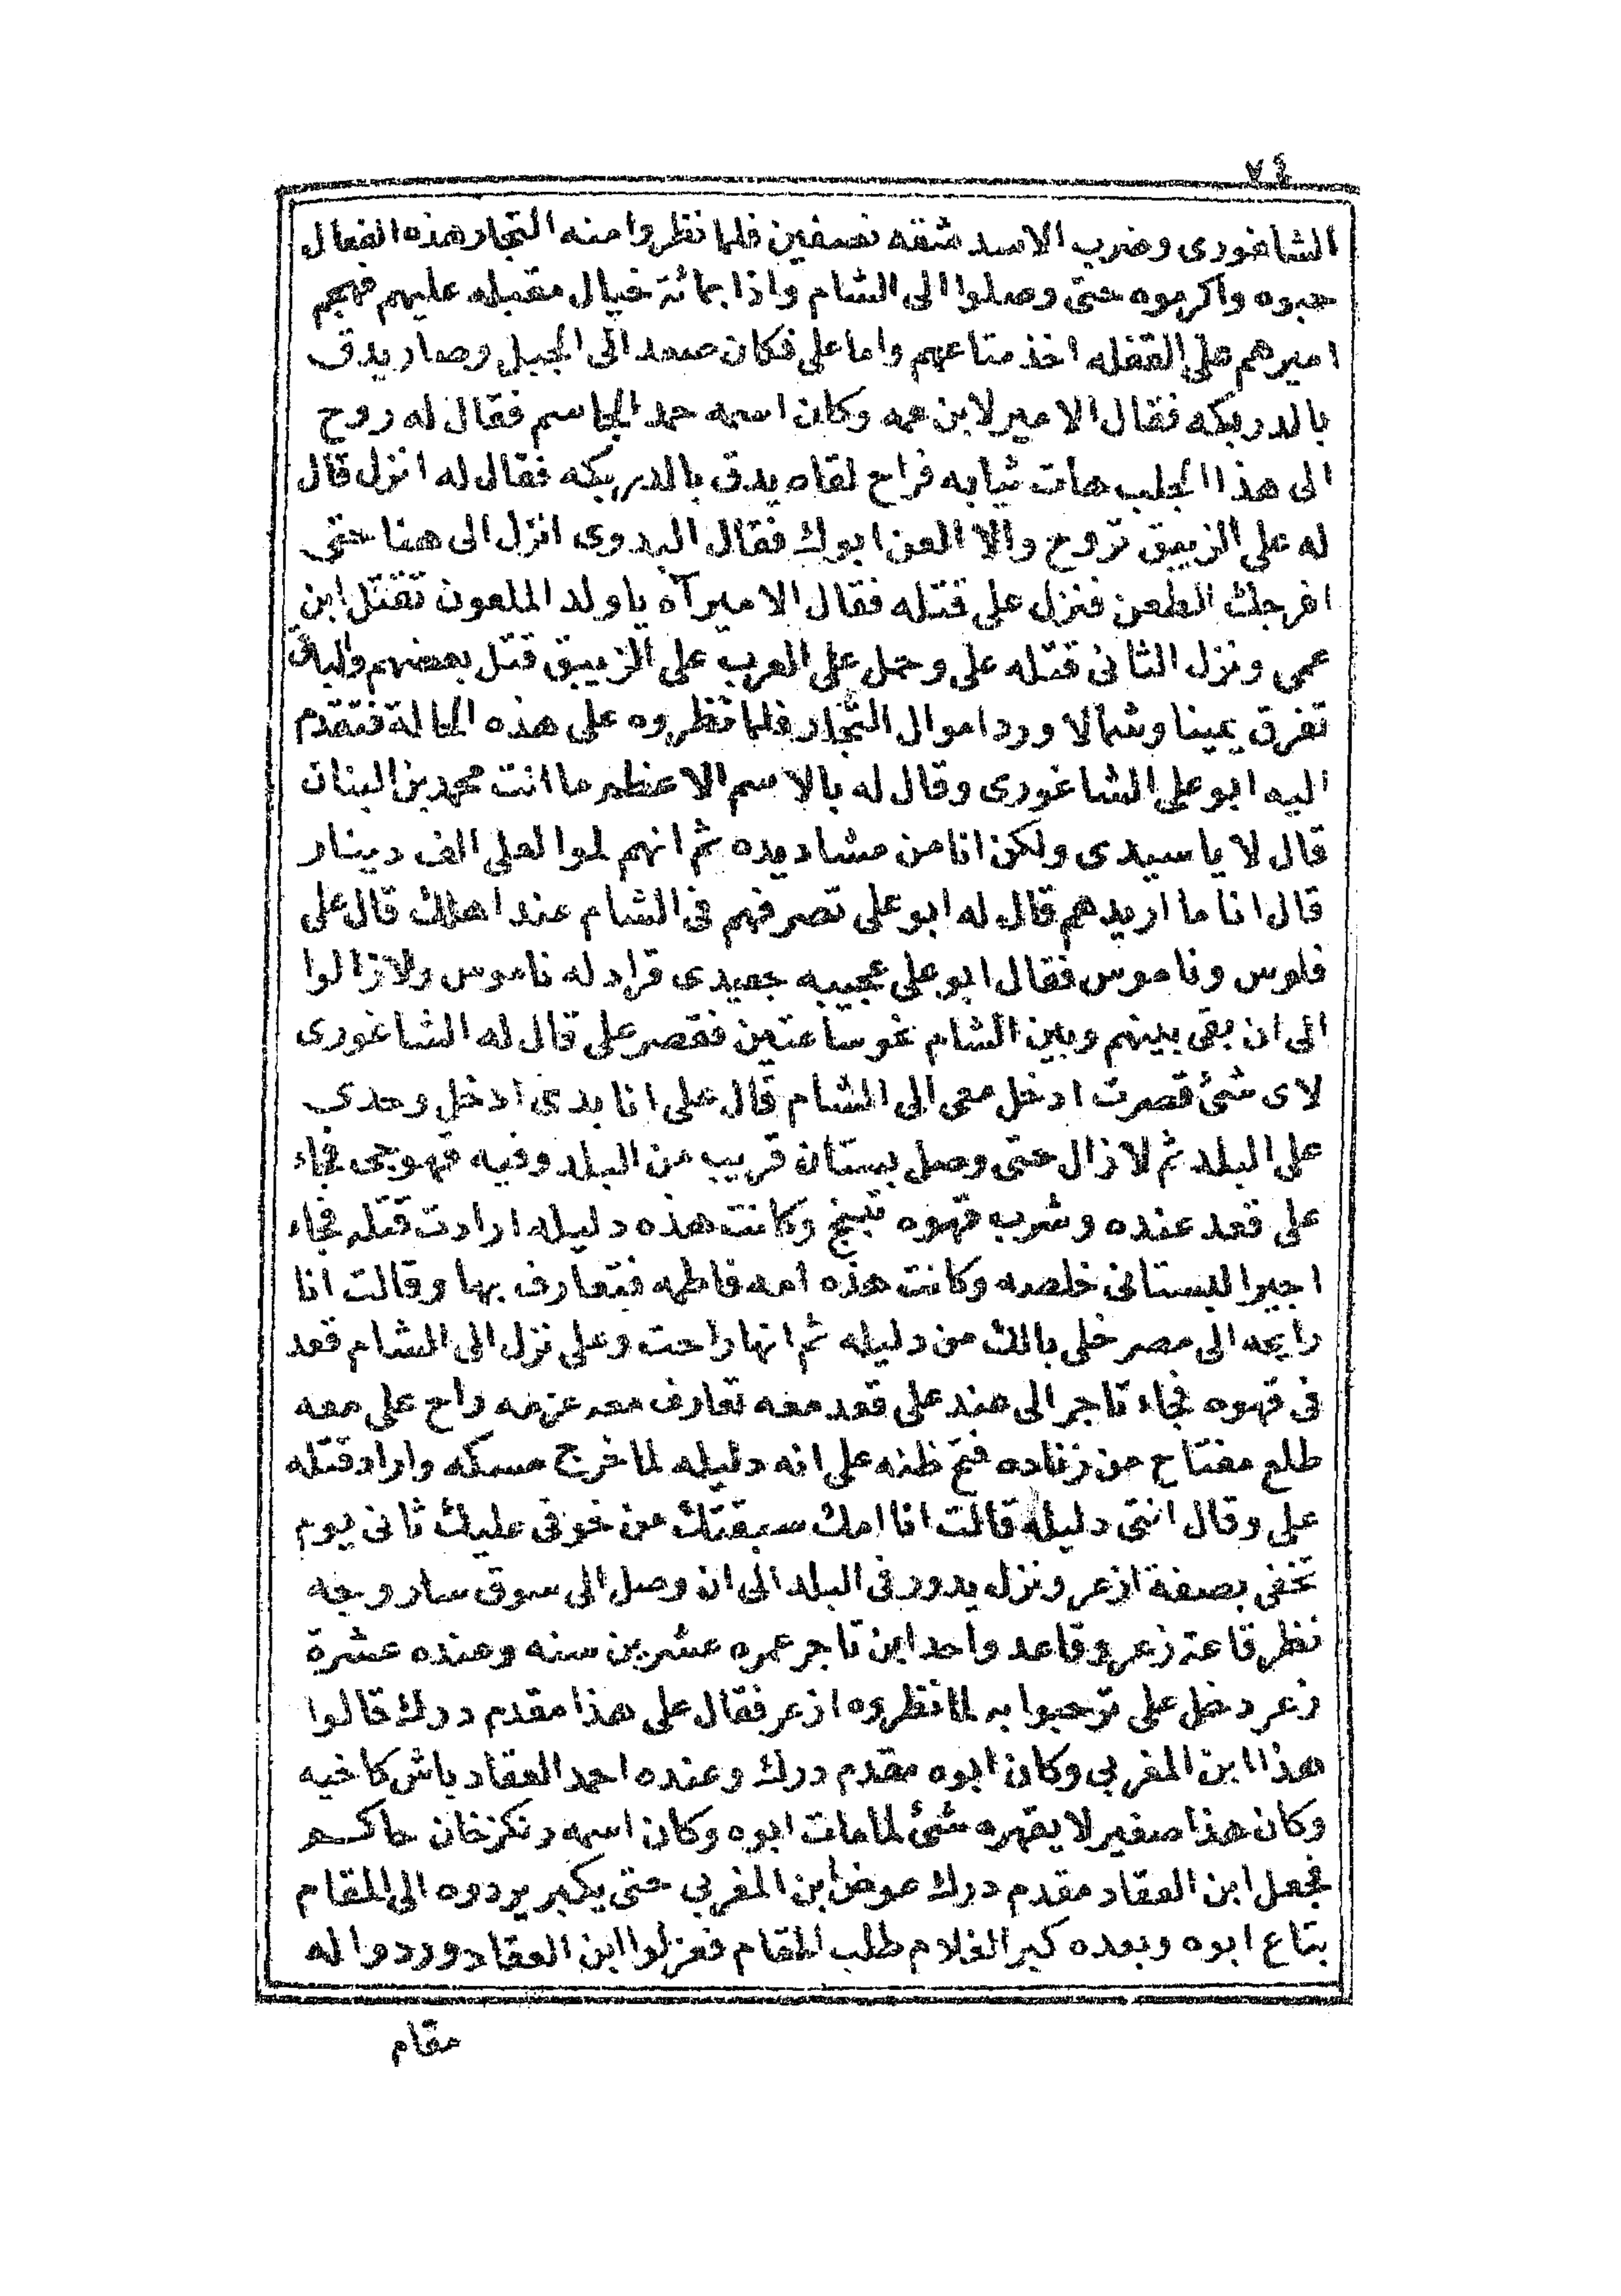 ٧٤
الشاغورى وضرب الاسد شقه نصفين فلما نظروا منه التجار هذه الفعال
حبوه واكرموه حتى وصلوا الى الشام واذا بمائة خيال مقبله عليهم فهجم
اميرهم على القفله اخذ متاعهم واما على فكان صعد الى الجبل وصار يدق
بالدربكه فقال الامير لابن عمه وكان اسمه حمد الجاسم فقال له روح
الى هذا الجلب هات ثيابه فراح لقاه يدق بالدربكه فقال له انزل قال
له على الزيبق تروح والا العن ابوك فقال البدوى انزل الى هنا حتى
افرجك الطعن فنزل على قتله فقال الامير آه يا ولد الملعون تقتل ابن
عمى ونزل الثانى قتله على وحمل على العرب على الزيبق قتل بعضهم والباقى
تفرق يمينا وشمالا ورد اموال التجار فلما نظروه على هذه الحالة فتقدم
اليه ابو على الشاغورى وقال له بالاسم الاعظم ما انت محمد بن البنان
قال لا يا سيدى ولكن انا من مشاديده ثم انهم لموا لعلى الف دينار
قال انا ما اريدهم قال له ابو على تصرفهم فى الشام عند اهلك قال على
فلوس وناموس فقال ابو على عجيبه جعيدى قراد له ناموس ولازالوا
الى ان بقى بينهم وبين الشام نحو ساعتين فقصر على قال له الشاغورى
لاى شئ قصرت ادخل معى الى الشام قال على انا بدى ادخل وحدى
على البلد ثم لازال حتى وصل بستان قريب من البلد وفيه قهوجى فجاء
على قعد عنده وشرب قهوه تبنج وكانت هذه دليله ارادت قتله فجاء
اجير البستانى خلصه وكانت هذه امه فاطمه فتعارف بها وقالت انا
رايحه الى مصر خلى بالك من دليله ثم انها راحت وعلى نزل الى الشام قعد
فى قهوه فجاء تاجر الى عند على قعد معه تعارف معه عزمه راح على معه
طلع مفتاح من زناده فتم ظنه على انه دليله لما خرج مسكه واراد قتله
على وقال انتى دليله قالت انا امك سبقتك من خوفى عليك ثانى يوم
تخفى بصفة ازعر ونزل يدور فى البلد الى ان وصل الى سوق ساروجه
نظر قاعة زعر وقاعد واحد ابن تاجر عمره عشرين سنه وعنده عشرة
زعر دخل على ترحبوا به لما نظروه ازعر فقال على هذا مقدم درك قالوا
هذا ابن المغربى وكان ابوه مقدم درك وعنده احمد العقاد باش كاخيه
وكان هذا صغير لا يقهره شئ لما مات ابوه وكان اسمه دنكزخان حاكم
فجعل ابن العقاد مقدم درك عوض ابن المغربى حتى يكبر يردوه الى المقام
بتاع ابوه وبعده كبر الغلام طلب المقام فعزلوا ابن العقاد وردوا له
مقام